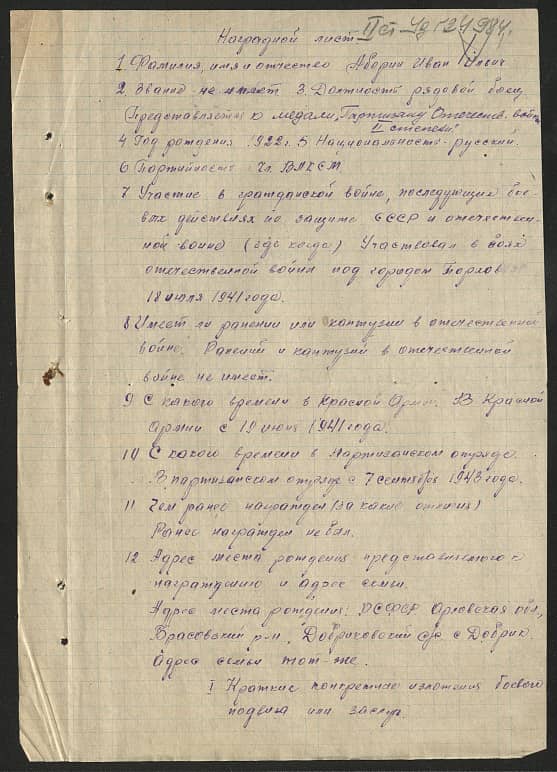 Наградной лист
1 Фамилия, имя и отчество Аборин Иван Ильич
2 Звание не имеет 3. Должность рядовой боец
Представляется к медали, Партизану Отечествен. войны
II степени!
4 Год рождения 1922 г. 5 Национальность русский.
6 Партийность Чл. ВЛКСМ
7 Участие в гражданской войне, последующих бое-
вых действиях по защите СССР и отечествен-
ной войне (где когда) Участвовал в боях
отечественной войны под городом
18 июля 1941 года.
8 Имеет ли ранении или контузии в отечественной
войне. Ранений и кантузий в отечественной
войне не имеет.
9 С какого времени в Красной Армии. В Красной
Армии с 19 июня 1941 года.
10 С какого времени в Партизанском отряде.
В партизанском отряде с 7 сентября 1943 года.
11 Чем ранее награжден (за какие отличия)
Ранее награжден не был.
12 Адрес места рождения представляемого к
награждению и адрес семьи.
Адрес места рождения: РСФСР Орловская обл,
Брасовский р-н, Добриковский с/с с Добрик.
Адрес семьи тот-же.
I Краткие конкретное изложения боевого
подвига или заслуг.